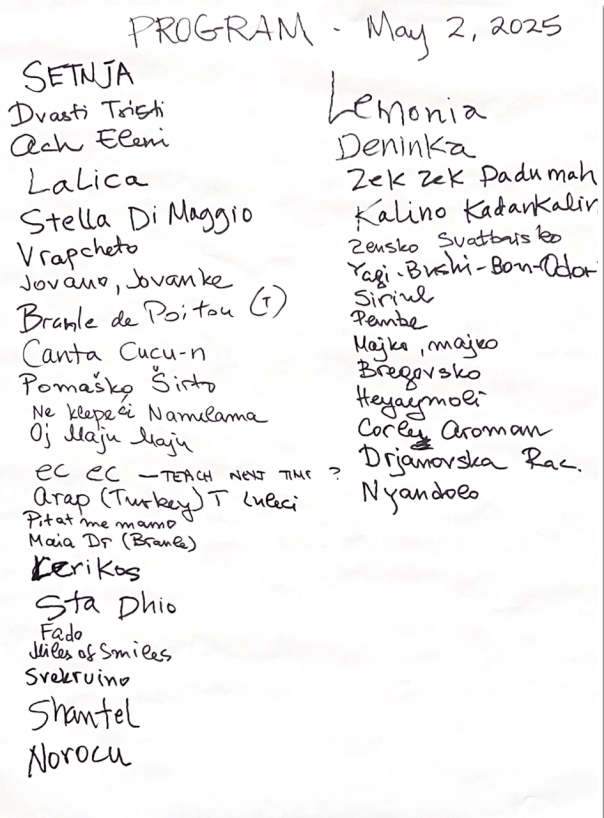 PROGRAM - May 2, 2025
SETNJA
Dvasti Tristi
Ach Eleni
Lalica
Stella Di Maggio
Vrapcheto
Jovano, Jovanke
Branle de Poitou (T)
Canta Cucu-n
Pomaško Širto
Ne klepeči Nanulama
Oj Maju Maju
EC EC - TEACH NEXT TIME ?
Arap (Turkey) T
Pitat me mamo
Maia Dr (Branle)
Kerikos
Sta Dhio
Fado
Miles of Smiles
Svekrvino
Shantel
Norocu
Lemonia
Deninka
Zek Zek Padumah
Kalino Kadankalin
Zensko Svatbarsko
Yagi-Bushi-Bon-Odori
Siriul
Pembe
Majko, majko
Bregovsko
Heyaymoli
Corley Aroman
Drjanovska Rac.
Nyandolo